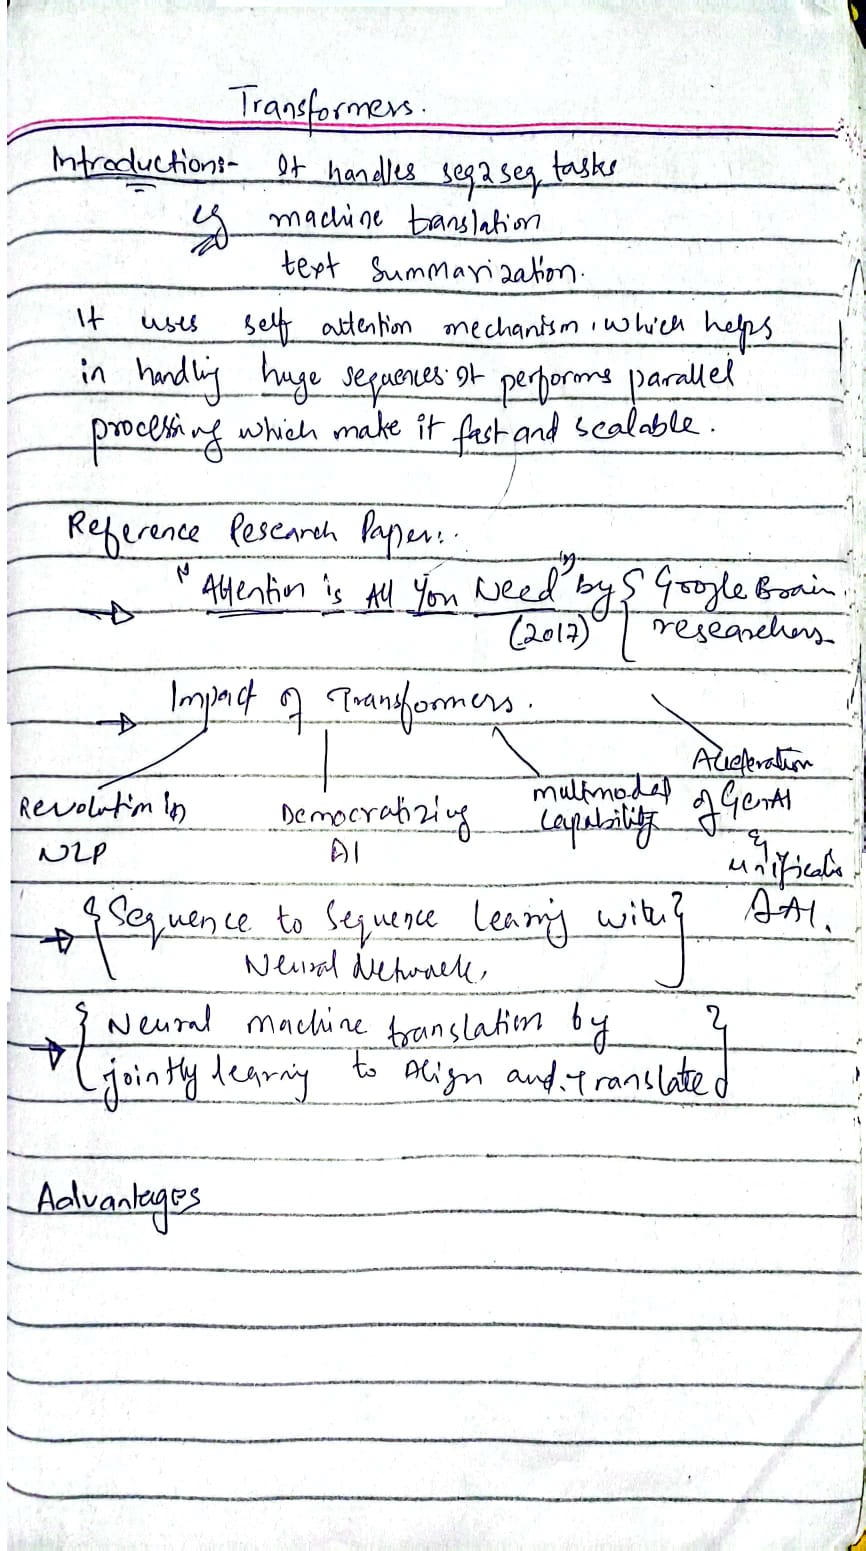 Transformers.
Introduction:- It handles seq2seq tasks
eg machine translation
text summarization.
It uses self attention mechanism, which helps
in handling huge sequences. It performs parallel
processing which make it fast and scalable.
Reference Research Paper:.
"Attention is All You Need" by { Google Brain
(2017) researchers
Impact of Transformers.
Revolution in
NLP
Democratizing
AI
multimodel
Capability
Acceleration
of GenAI
&
unification
AI.
{ Sequence to Sequence learning with }
Neural Network,
{ Neural machine translation by }
jointly learning to Align and Translate
Advantages